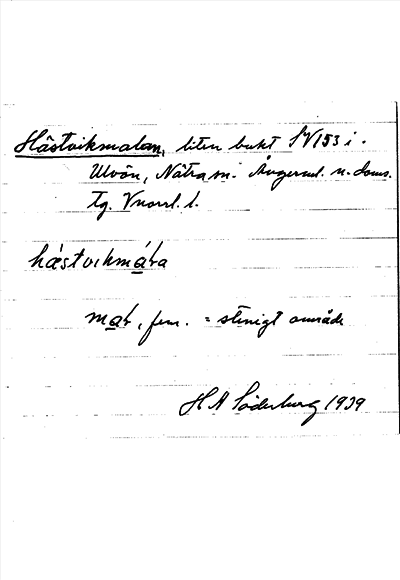 Hästvikmalan, liten bukt SV153 i.
Ulvön, Nätra sn. Ångerml. n. doms.
tg. Vnorrl. l.
hästvikmála
mal, fem. = stenigt område
H A Söderburg 1939